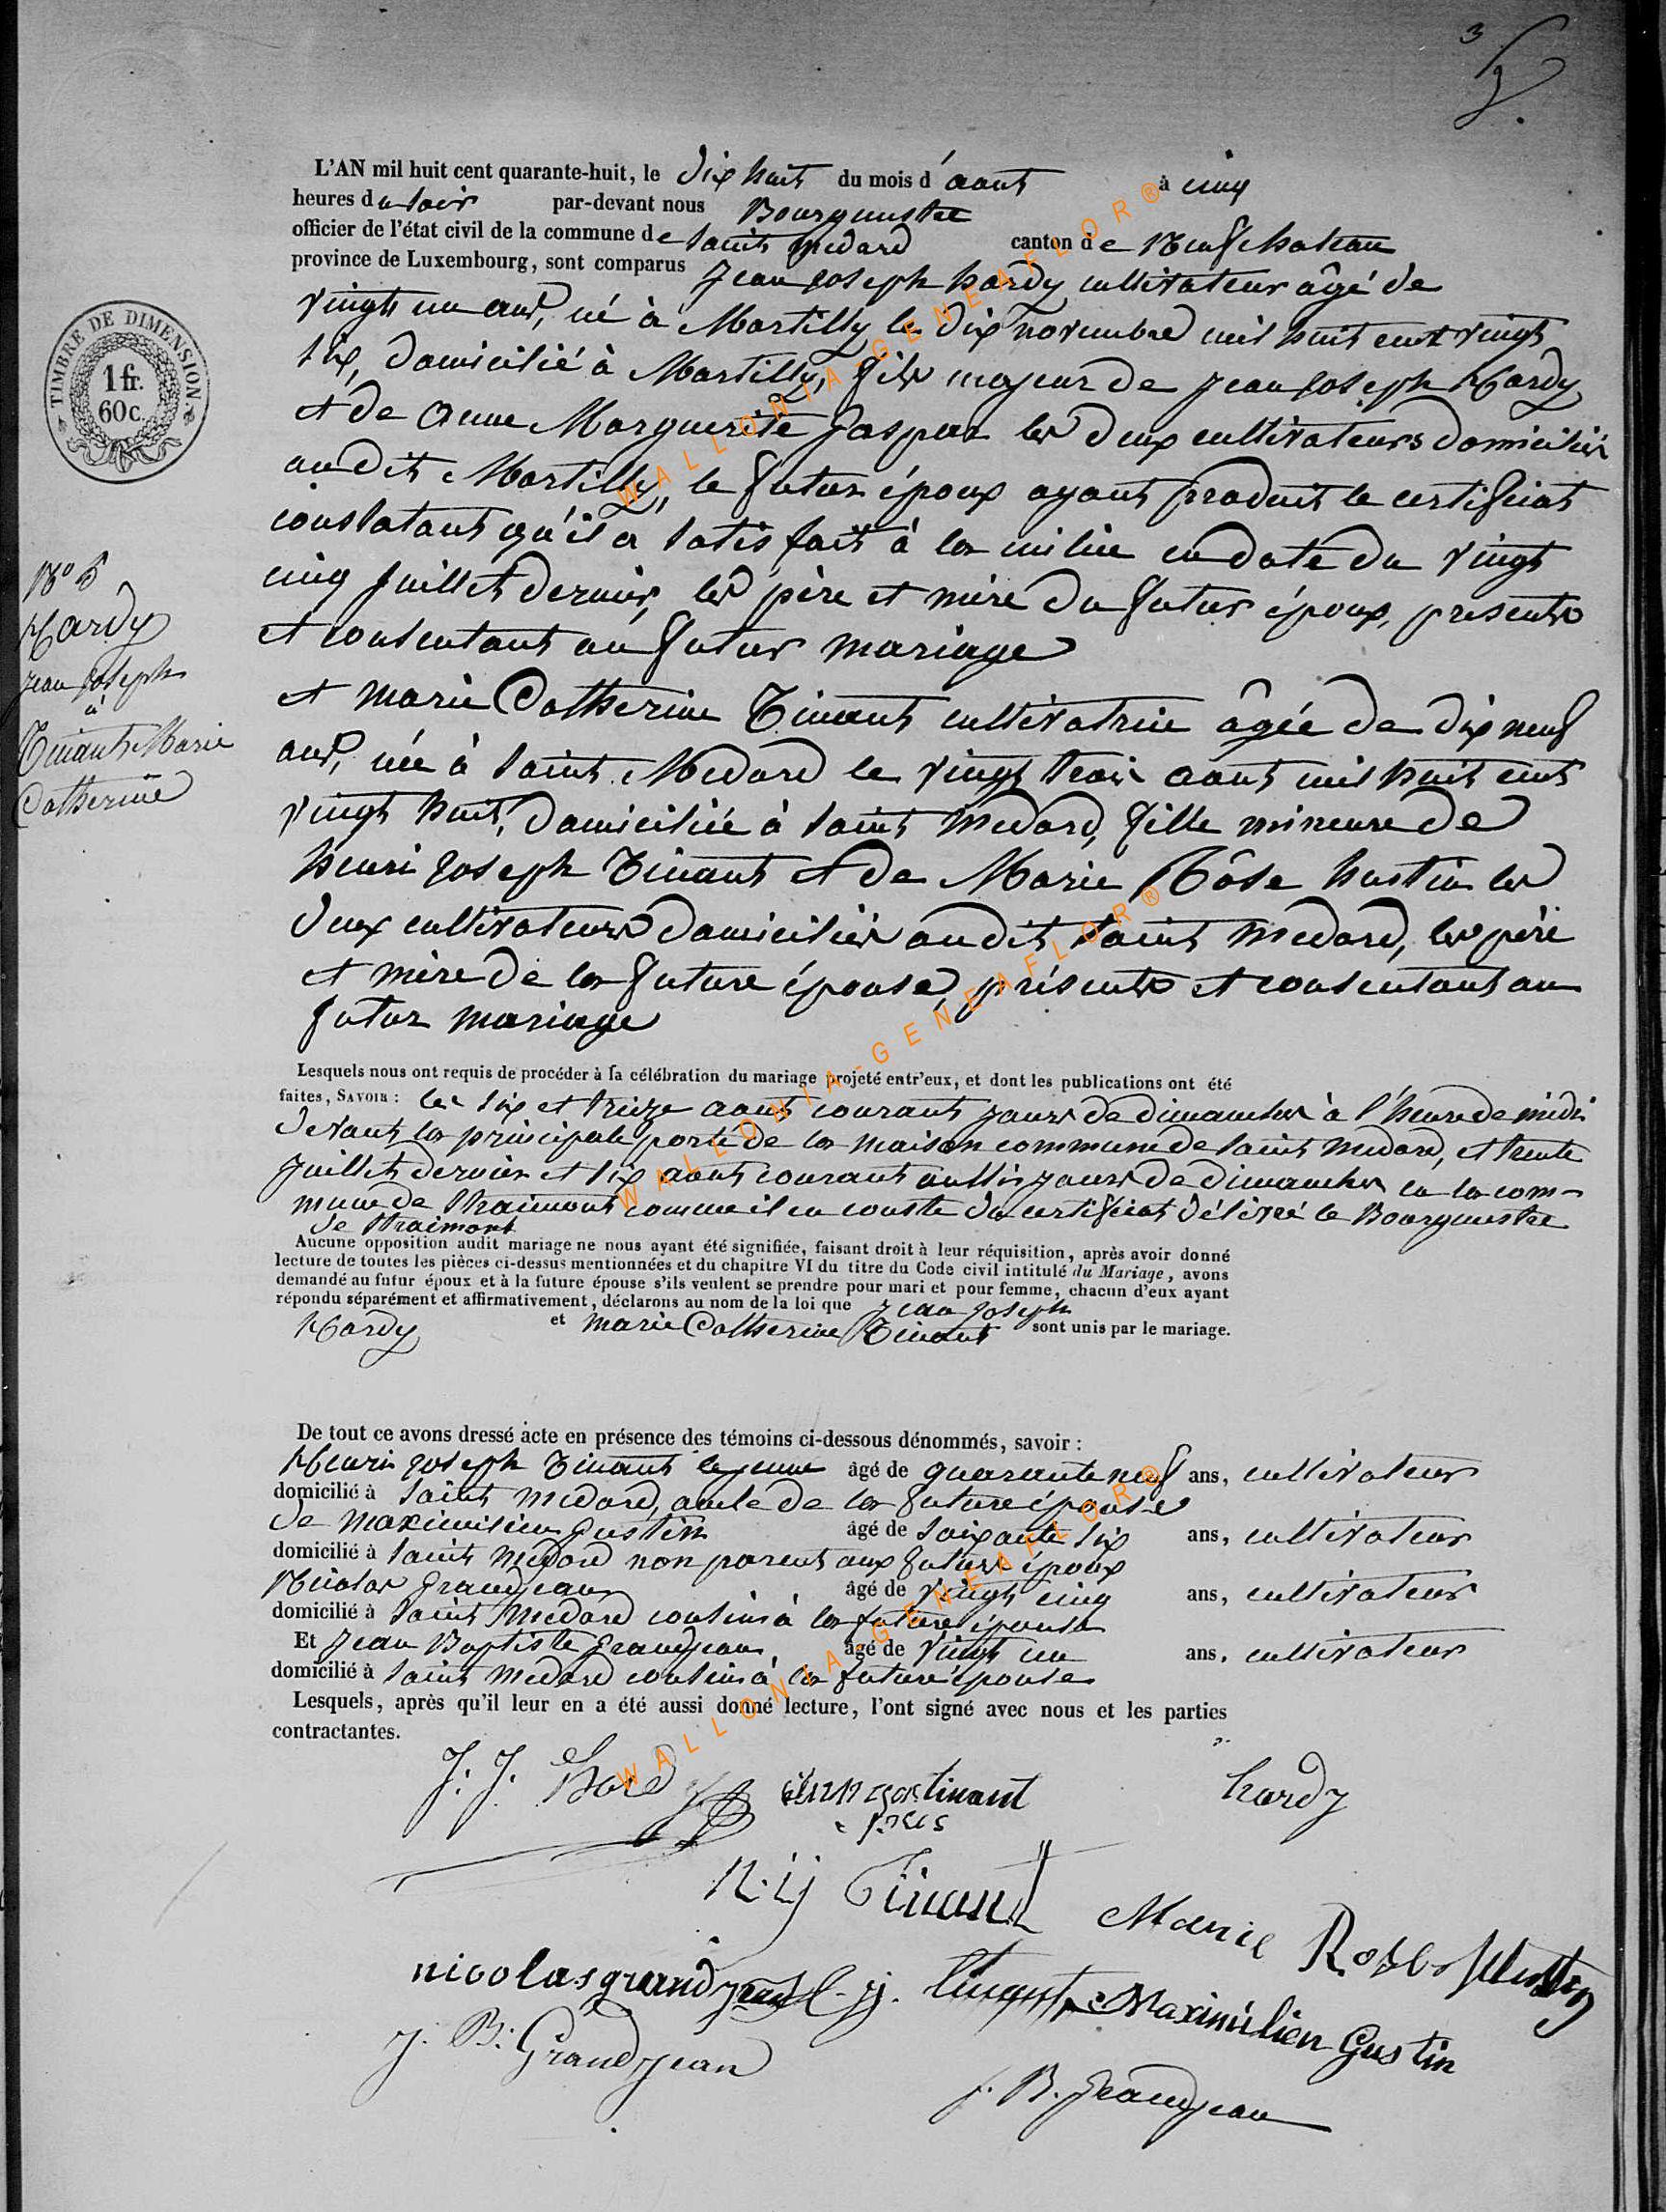 3
5.
L'AN mil huit cent quarante-huit, le dix huit du mois d'aout à cinq
heures du soir par-devant nous Bourgmestre
officier de l'état civil de la commune de Saint Medard canton de Neufchateau
province de Luxembourg, sont comparus Jean Joseph hardy cultivateur âgé de
vingt un ans, né à Martilly le dix novembre mil huit cent vingt
six, domicilié à Martilly, fils majeur de Jean Joseph Hardy
et de Anne Marguerite Jaspar les deux cultivateurs domiciliés
audit Martilly, le futur époux ayant produit le certificat
constatant qu'il a satisfait à la milice en date du vingt
cinq Juillet dernier, les père et mère du futur époux, presents
et consentant au futur mariage
et Marie Catherine Tinant cultivatrice âgée de dix neuf
ans, née à Saint Medard le vingt trois aout mil huit cent
vingt huit, domiciliée à Saint Medard, fille mineure de
henri Joseph Tinant et de Marie Rôse hustin les
deux cultivateurs domiciliés audit Saint Medard, les père
et mère de la future épouse, présents et consentant au
futur mariage
TIMBRE DE DIMENSION.
1 fr.
60 c.
N° 5
Hardy
Jean Joseph
à
Tinant Marie
Catherine
Lesquels nous ont requis de procéder à la célébration du mariage projeté entr'eux, et dont les publications ont été
faites, SAVOIR : les six et treize aout courant jours de dimanches à l'heure de midi
devant la principale porte de la maison commune de Saint Medard, et trente
Juillet dernier et six aout courant aussi jours de dimanches en la com-
mune de Straimont comme il en conste du certificat délivré le Bourgmestre
de Straimont
Aucune opposition audit mariage ne nous ayant été signifiée, faisant droit à leur réquisition, après avoir donné
lecture de toutes les pièces ci-dessus mentionnées et du chapitre VI du titre du Code civil intitulé du Mariage, avons
demandé au futur époux et à la future épouse s'ils veulent se prendre pour mari et pour femme, chacun d'eux ayant
répondu séparément et affirmativement, déclarons au nom de la loi que Jean Joseph
Hardy et Marie Catherine Tinant sont unis par le mariage.
De tout ce avons dressé acte en présence des témoins ci-dessous dénommés, savoir :
Henri Joseph Tinant le jeune âgé de quarante neuf ans, cultivateur
domicilié à Saint Medard, oncle de la future épouse
de Maximilien Gustin âgé de soixante six ans, cultivateur
domicilié à Saint Medard non parent aux futurs époux
Nicolas Grandjean âgé de vingt cinq ans, cultivateur
domicilié à Saint Medard cousin à la future épouse
Et Jean Baptiste Grandjean âgé de vingt un ans, cultivateur
domicilié à Saint Medard cousin à la future épouse
Lesquels, après qu'il leur en a été aussi donné lecture, l'ont signé avec nous et les parties
contractantes.
J. J. Hardy tinant hardy
Tinant Marie Rose hustin
nicolas grandjean tinant Maximilien Gustin
J. B. Grandjean
J. B. Grandjean
WALLONIA-GENEAFLOR®
WALLONIA-GENEAFLOR®
WALLONIA-GENEAFLOR®